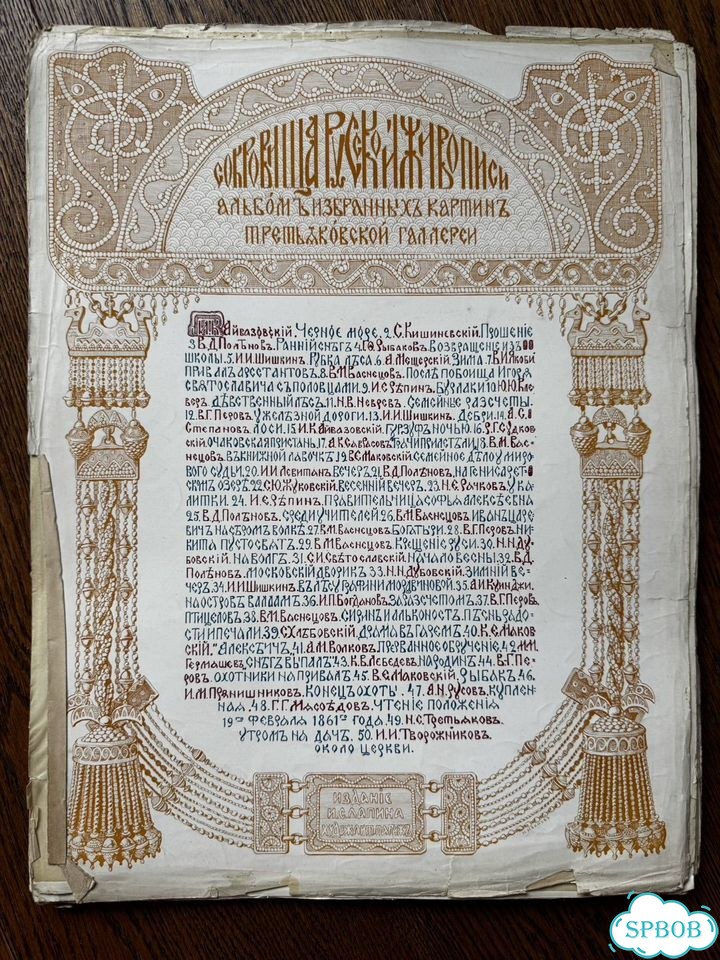 СОКРОВИЩА РУССКОЙ ЖИВОПИСИ
АЛЬБОМЪ ИЗБРАННЫХЪ КАРТИНЪ
ТРЕТЬЯКОВСКОЙ ГАЛЛЕРЕИ
Айвазовскій. Черное море. 2. С. Кишиневскій. Прошеніе
3. В. Д. Полѣновъ. Ранній снѣгъ 4. Рыбаковъ. Возвращеніе изъ
школы. 5. И. И. Шишкин. Рубка лѣса. 6. А. Мещерскій Зима. 7. В. И. Якоби
Привалъ арестантовъ. 8. В. М. Васнецов. Послѣ побоища Игоря
Святославича съ половцами. 9. И. Е. Рѣпинъ. Бурлаки 10. Ю. Ю. Кле
веръ Дѣвственный лѣсъ. 11. Н. В. Невревъ. Семейные разсчеты.
12. В. Г. Перовъ. У желѣзной дороги. 13. И. И. Шишкинъ. Дебри. 14. А. С.
Степановъ. Лоси. 15. И. К. Айвазовскій. Гурзуфъ ночью. 16. Р. Г. Судков
скій. Очаковская пристань. 17. А. К. Саврасовъ. Грачи прилетѣли 18. В. М. Вас-
нецовъ. Въ книжной лавочкѣ 19. В. Е. Маковскій Семейное дѣло у миро
вого судьи. 20. И. И. Левитанъ Вечеръ. 21. В. Д. Полѣновъ. На Генисарет-
скомъ озерѣ. 22. С. Ю. Жуковскій. Весенній вечеръ. 23. Н. Е. Рачковъ. У ка
литки. 24. И. Е. Рѣпинъ. Правительница Софья Алексѣевна
25. В. Д. Полѣновъ. Среди учителей. 26. В. М. Васнецовъ. Иванъ царе
вичъ на сѣромъ волкѣ. 27. В. М. Васнецовъ. Богатыри. 28. В. Г. Перовъ. Ни-
кита Пустосвятъ. 29. В. М. Васнецовъ. Крещеніе Руси. 30. Н. Н. Ду-
бовскій. На Волгѣ. 31. С. И. Свѣтославскій. Начало весны. 32. В. Д.
Полѣновъ. Московскій дворикъ. 33. Н. Н. Дубовскій. Зимній ве-
черъ. 34. И. И. Шишкинъ. Въ лѣсу графини Мордвиновой. 35. А. И. Куинджи.
На островѣ Валаамѣ. 36. И. П. Богдановъ. За разсчетомъ. 37. В. Г. Перовъ.
Птицеловъ. 38. В. М. Васнецовъ. Сиринъ и Алконостъ. Пѣснь радо-
сти и печали 39. С. Хлѣбовскій. Драма въ гаремѣ. 40. К. Е. Маков
скій. „Алексѣичъ„ 41. А. М. Волковъ. Прерванное обрученіе. 42. М. М.
Гермашевъ. Снѣгъ выпалъ. 43. К. В. Лебедевъ. На родинѣ. 44. В. Г. Пе-
ровъ. Охотники на привалѣ. 45. В. Е. Маковскій. Рыбакъ. 46.
И. М. Прянишниковъ. Конецъ охоты. 47. А. Н. Русовъ. Куплен-
ная. 48. Г. Г. Мясоѣдовъ. Чтеніе положенія
19го февраля 1861го года. 49. Н. С. Третьяковъ.
Утромъ на дачѣ. 50. И. И. Творожниковъ.
Около церкви.
ИЗДАНІЕ
И. С. ЛАПИНА
SPBOB